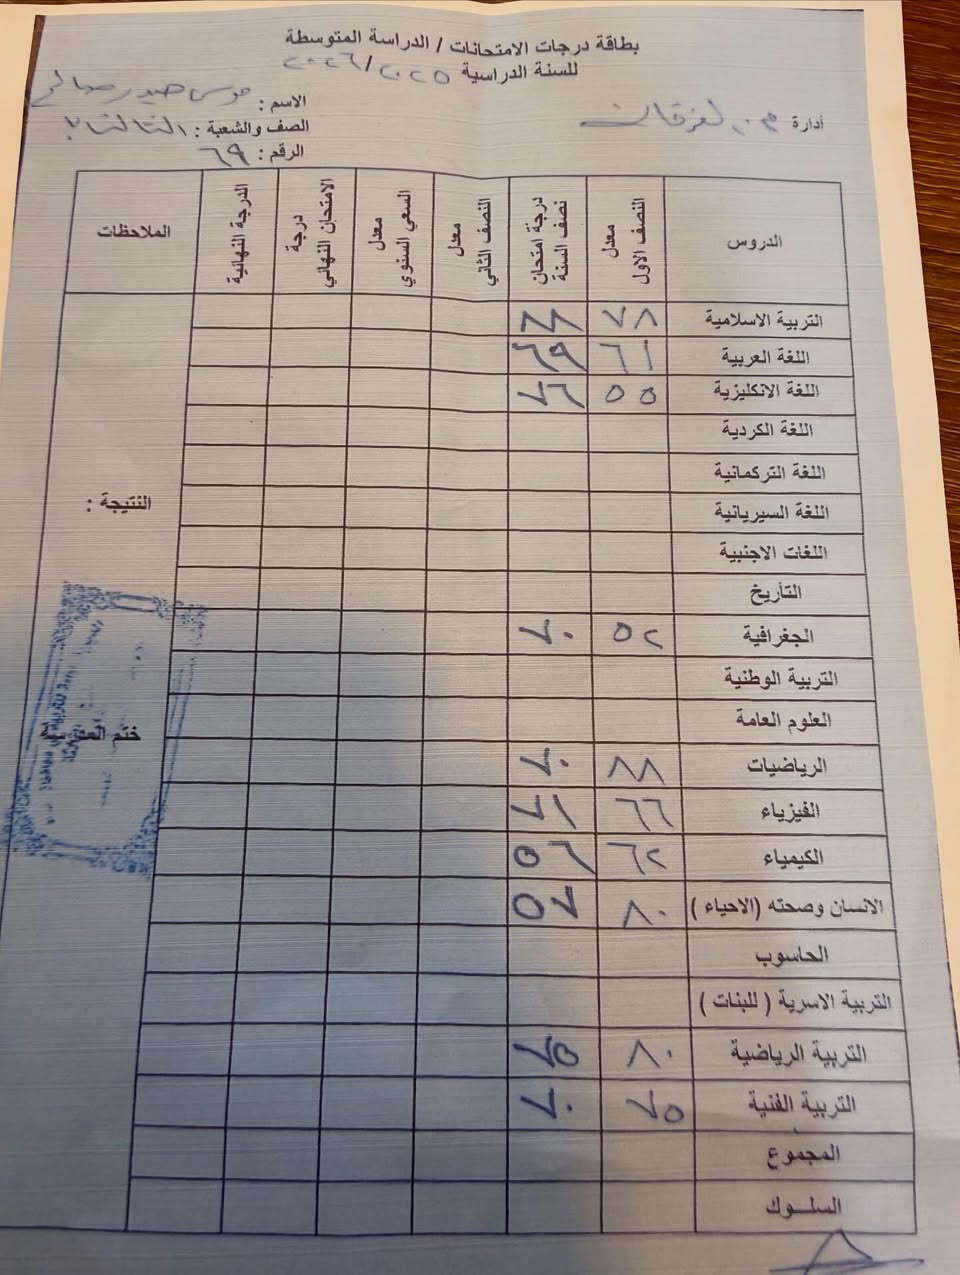 بطاقة درجات الامتحانات / الدراسة المتوسطة
للسنة الدراسية ٢٠٢٥/٢٠٢٦
أدارة م. الفرقان
الاسم : موسى حيدر صالح
الصف والشعبة : الثالث
الرقم : ٦٩
الدروس معدل النصف الاول درجة امتحان نصف السنة معدل النصف الثاني معدل السعي السنوي درجة الامتحان النهائي الدرجة النهائية الملاحظات
التربية الاسلامية ٧٨
اللغة العربية ٦١ ٦٩
اللغة الانكليزية ٥٥ ٧٦
اللغة الكردية
اللغة التركمانية
اللغة السيريانية
النتيجة :
اللغات الاجنبية
التأريخ
الجغرافية ٥٢ ٧٠
التربية الوطنية
العلوم العامة
ختم المدرسة
الرياضيات ٨٨ ٧٠
الفيزياء ٦٦ ٧١
الكيمياء ٦٢ ٥٦
الانسان وصحته (الاحياء ) ٨٠ ٥٧
الحاسوب
التربية الاسرية ( للبنات )
التربية الرياضية ٨٠ ٧٥
التربية الفنية ٧٥ ٧٠
المجموع
السلوك